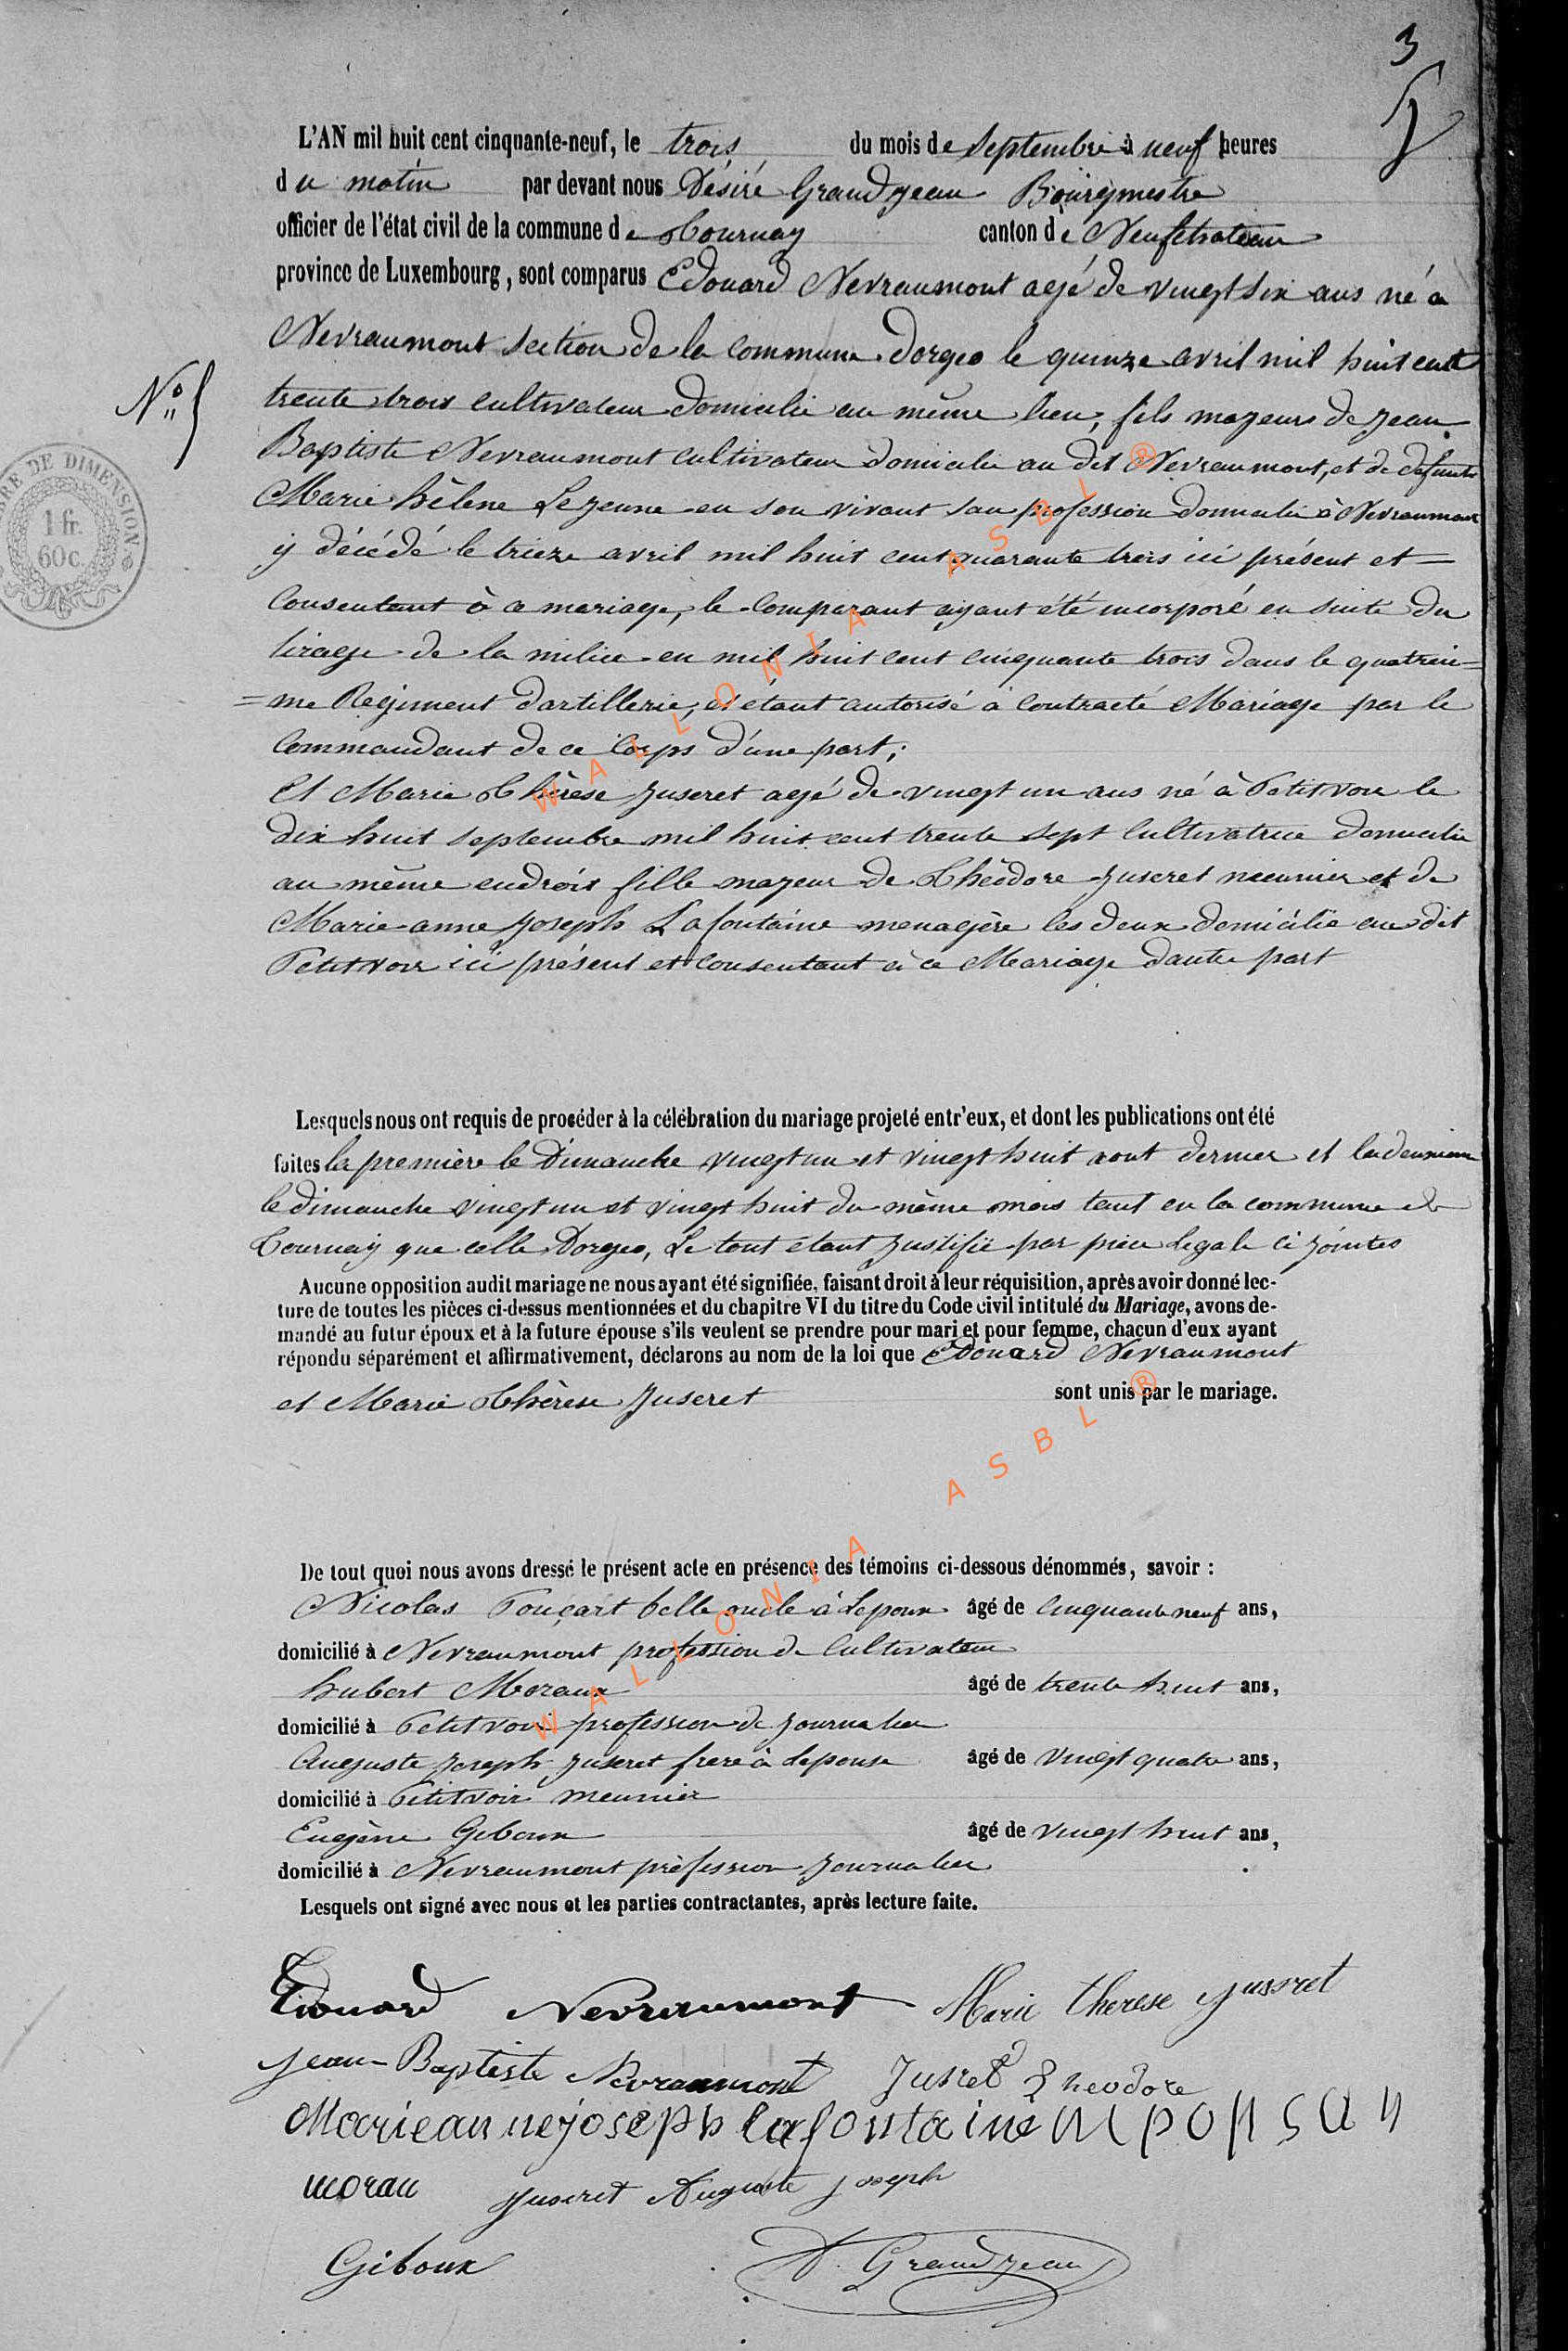 3
5
L'AN mil huit cent cinquante-neuf, le trois du mois de Septembre à neuf heures
du matin par devant nous Désiré Grandjean Bourgmestre
officier de l'état civil de la commune de Tournay canton de Neufchateau
province de Luxembourg, sont comparus Edouard Nevraumont agé de vingt six ans né à
Nevraumont section de la commune dorgeo le quinze avril mil huit cent
N° 5
trente trois cultivateur domicilié au même lieu, fils majeurs de Jean
Baptiste Nevraumont cultivateur domicilié au dit Nevraumont, et de defunte
Marie hélene Lejeune en son vivant san profession domicilié à Nevraumont
y décédé le trieze avril mil huit cent quarante trois ici présent et =
Consentant à ce mariage, le Comparant ayant été incorporé en suite du
tirage de la milice en mil huit cent cinquante trois dans le quatrieu=
=me Regiment dartillerie, et étant autorisé à contracté Mariage par le
Commandant de ce Corps d'une part;
Et Marie Thérèse Juseret agé de vingt un ans né à Petitvoir le
dix huit septembre mil huit cent trente sept Cultivatrice domicilié
au même endroit fille majeur de Théodore Juseret meunier et de
Marie-anne Joseph Lafontaine menagère les deux domicilié au dit
Petitvoir ici présent et Consentant à ce Mariage dautre part
Lesquels nous ont requis de procéder à la célébration du mariage projeté entr'eux, et dont les publications ont été
faites la première le Dimanche vingt un et vingt huit aout dernier et la deuxieme
le dimanche vingt un et vingt huit du même mois tant en la commune de
Tournay que celle Dorgeo, Le tout étant Justifié par piece Legale ci jointes
Aucune opposition audit mariage ne nous ayant été signifiée, faisant droit à leur réquisition, après avoir donné lec-
ture de toutes les pièces ci-dessus mentionnées et du chapitre VI du titre du Code civil intitulé du Mariage, avons de-
mandé au futur époux et à la future épouse s'ils veulent se prendre pour mari et pour femme, chacun d'eux ayant
répondu séparément et affirmativement, déclarons au nom de la loi que Edouard Nevraumont
et Marie Thérèse Juseret sont unis par le mariage.
De tout quoi nous avons dressé le présent acte en présence des témoins ci-dessous dénommés, savoir :
Nicolas Ponçart belle oncle à Lepoux âgé de Cinquante neuf ans,
domicilié à Nevraumont profession de Cultivateur
hubert Moraux âgé de trente huit ans,
domicilié à Petitvoir profession de Journalier
Auguste Joseph Juseret frere à Lepouse âgé de vingt quatre ans,
domicilié à Petitvoir meunier
Eugène Giboux âgé de vingt huit ans,
domicilié à Nevraumont profession Journalier
Lesquels ont signé avec nous et les parties contractantes, après lecture faite.
Edouard Nevraumont Marie therese Jusseret
Jean-Baptiste Nevraumont Jusret Theodore
Marieannejoseph lafontaine N ponsar
morau Juseret Auguste Joseph
Giboux D. Grandjean
TIMBRE DE DIMENSION
1 fr.
60 c.
WALLONIA ASBL ®
WALLONIA ASBL ®